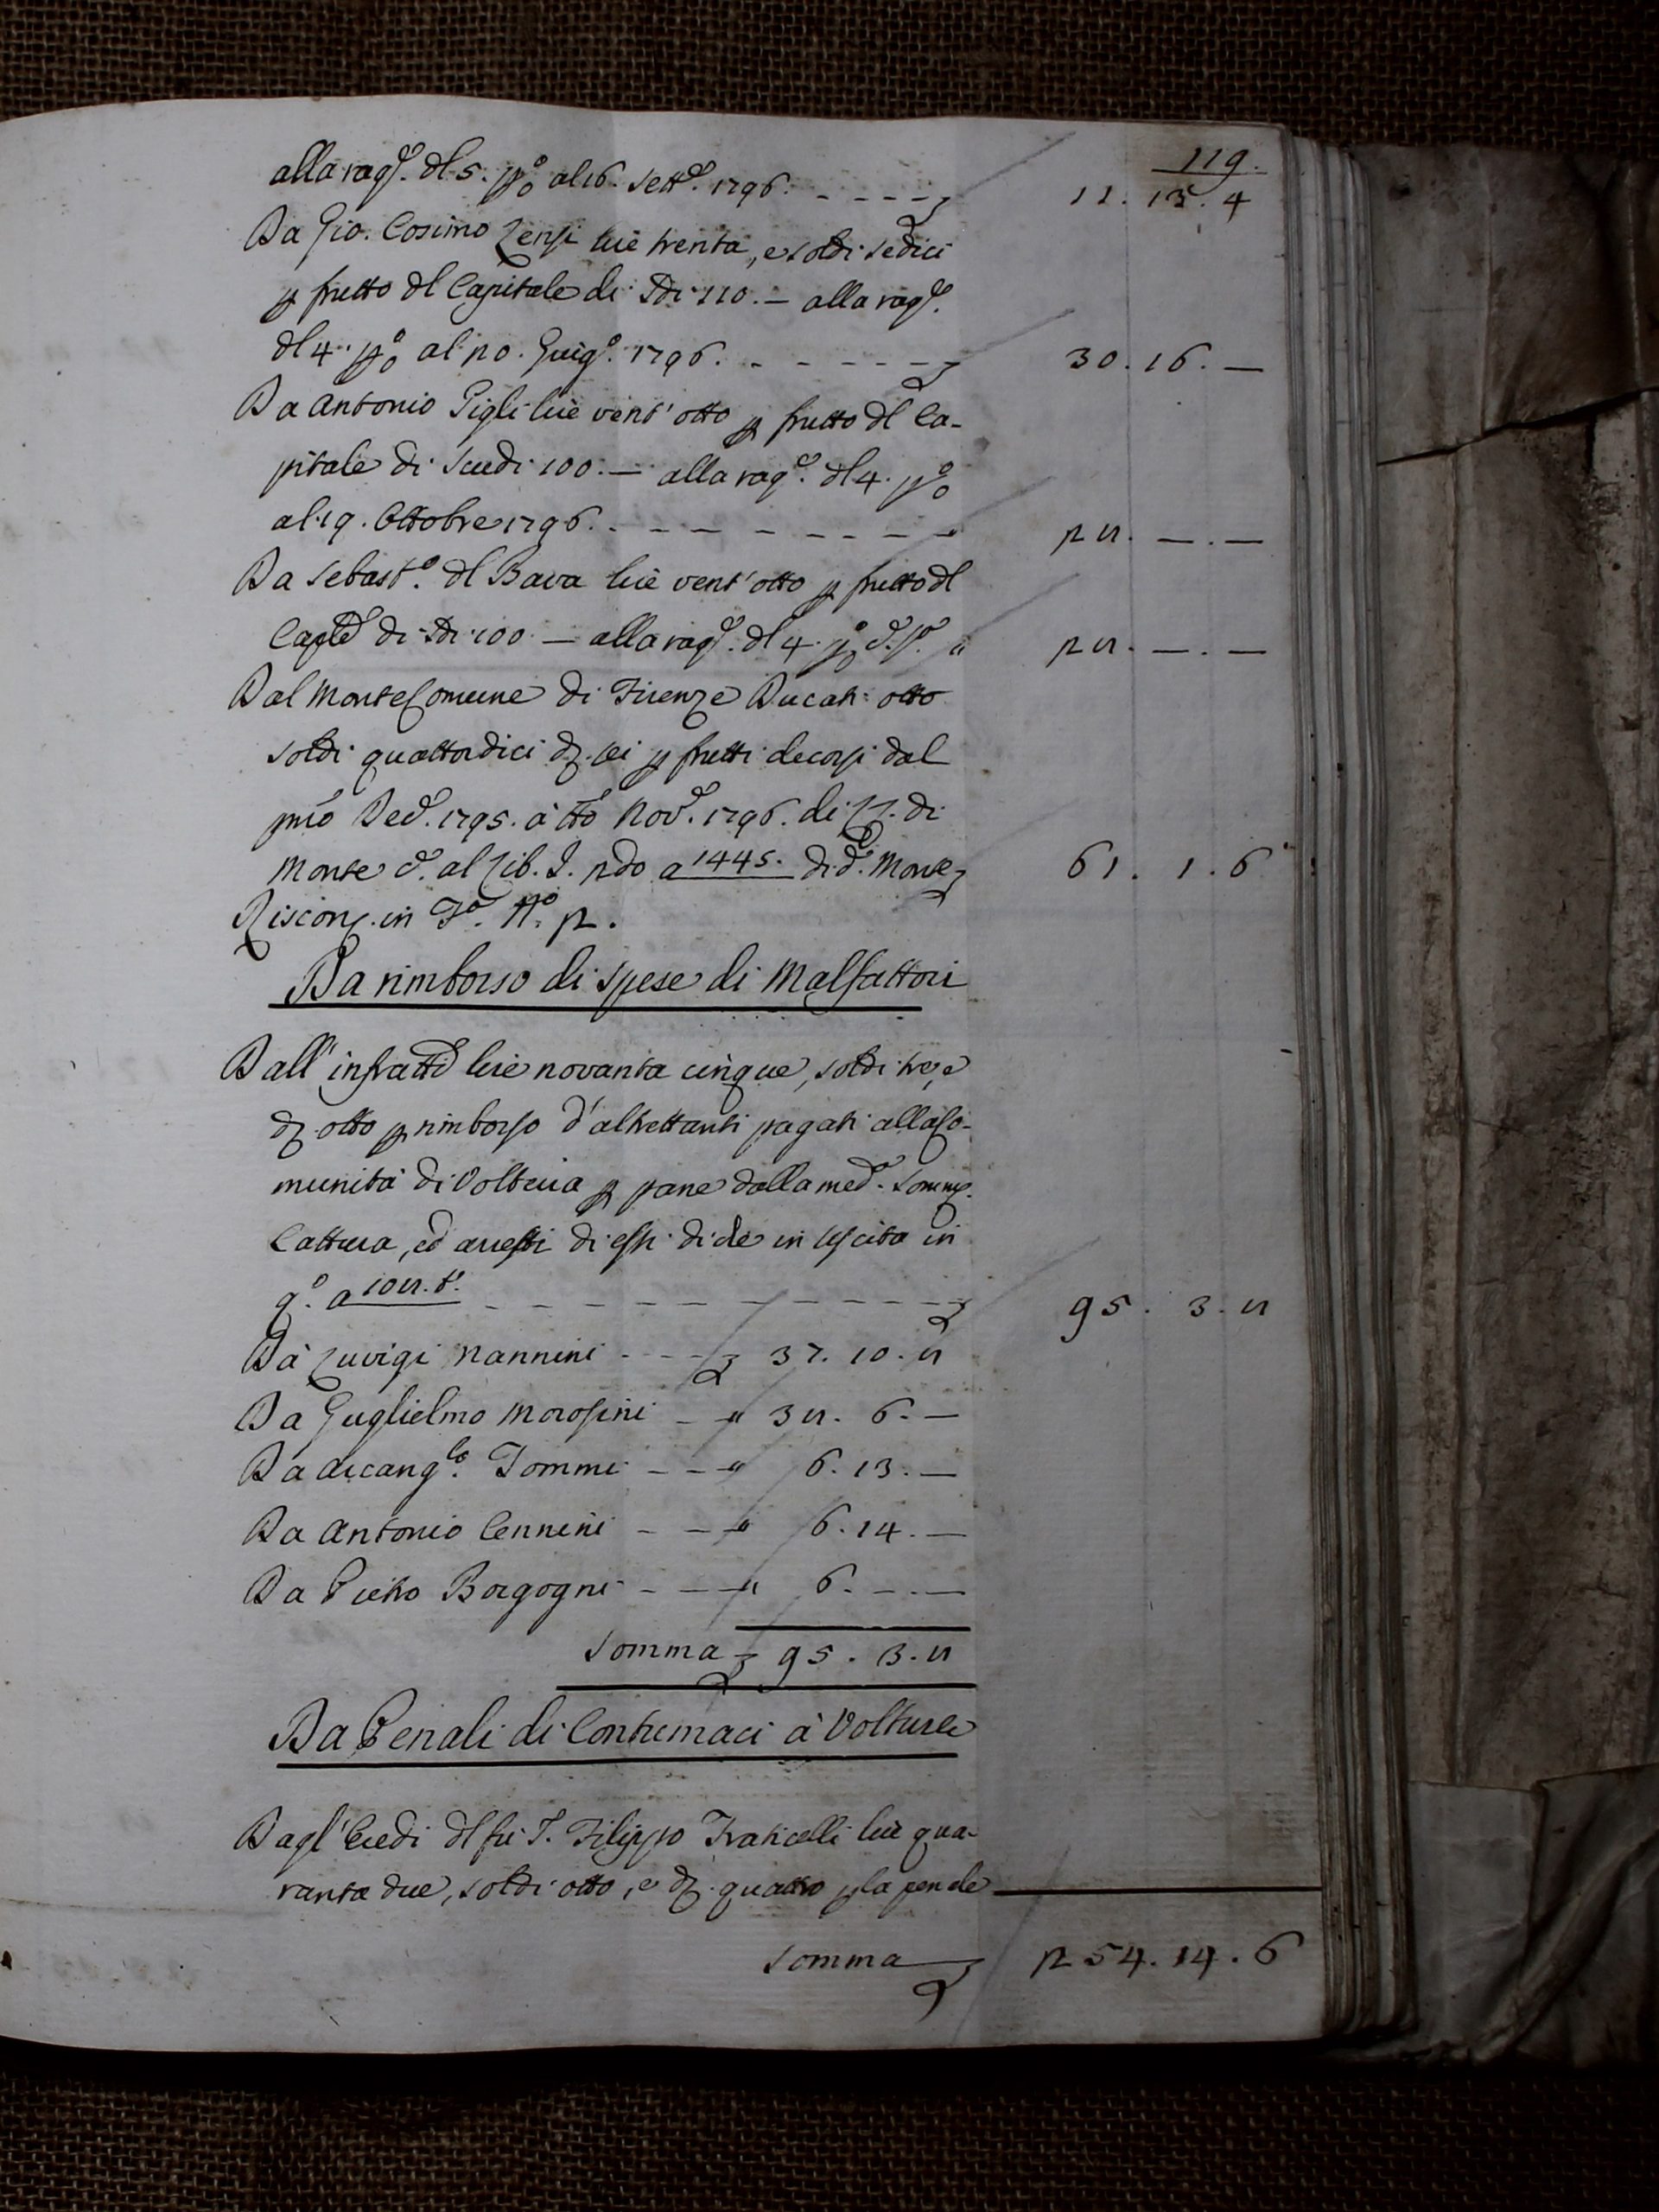 119.
alla rag.e dl 5. p%o al 16. Sett.e 1796. - - - - 11. 13. 4
Da Gio. Cosimo Lensi lire trenta, e soldi sedici
p frutto dl Capitale di Sdi 110. — alla rag.e
dl 4. p%o al 20. Giug.o 1796. - - - - - - 30. 16. —
Da Antonio Pigli lire vent'otto p frutto dl Ca-
pitale di Scudi 100. — alla rag.e dl 4. p%o
al 19. Ottobre 1796. - - - - - - - - 28. —. —
Da Sebast.o dl Bava lire vent'otto p frutto dl
Caple di Sdi 100. — alla rag.e dl 4. p%o d.o " 28. —. —
Dal Monte Comune di Firenze Ducati otto
soldi quattordici d. sei p frutti decorsi dal
pmo Dec.e 1795. à tto Nov.e 1796. di LL. di
Monte d. al Lib. I. 2do a 1445. di d.o Monte 61. 1. 6
Riscon. in F.a N.o 2.
Da rimborso di Spese di Malfattori
Dall' infratti lire novanta cinque, soldi tre, e
d. otto p rimborso d'altrettanti pagati alla Co-
munità di Volterra p pane dalla med.a Somm.
Cattura, ed arresti di essi di che in Uscita in
q.o a 108. t.o - - - - - - - - - - 95. 3. 8
Da Luvigi Nannini - - - - 37. 10. 8
Da Guglielmo Morosini - " 38. 6. —
Da Arcang.lo Tommi - - " 6. 13. —
Da Antonio Cennini - - " 6. 14. —
Da Pietro Borgogni - - - " 6. —. —
Somma 95. 3. 8
Da Penali di Contumaci à Volture
Dagl' Eredi dl fù S. Filippo Fraticelli lire qua-
ranta due, soldi otto, e d. quattro p la penale
Somma 254. 14. 6